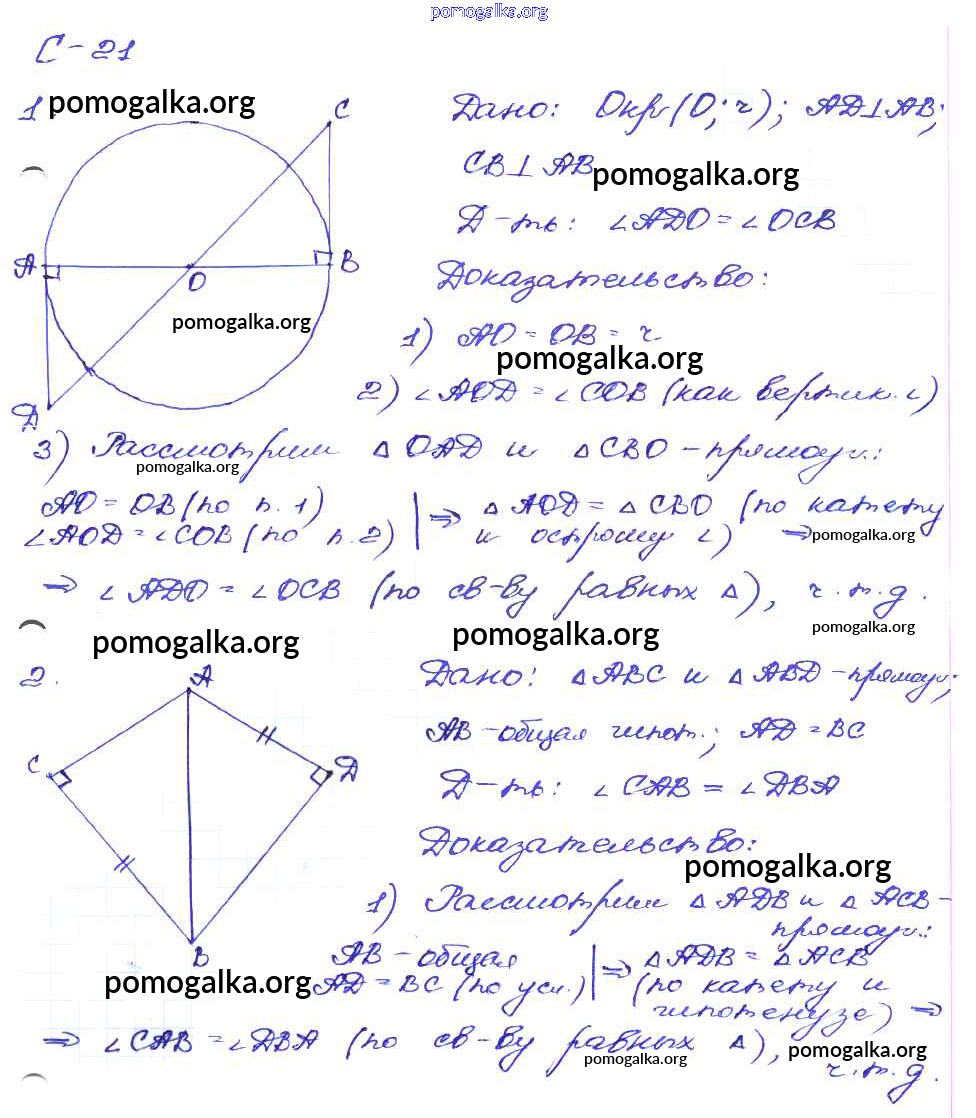 pomogalka.org
С-21
1. pomogalka.org
С
Дано: Окр(О; r); AD⊥AB;
CB⊥AB pomogalka.org
Д-ть: ∠ADO = ∠OCB
A O B
Доказательство:
pomogalka.org
1) AO = OB = r
pomogalka.org
2) ∠AOD = ∠COB (как вертик. ∠)
D
3) Рассмотрим △OAD и △CBO - прямоуг.:
pomogalka.org
AO = OB (по п. 1) | ⇒ △AOD = △CBO (по катету
∠AOD = ∠COB (по п. 2) | и острому ∠) ⇒ pomogalka.org
⇒ ∠ADO = ∠OCB (по св-ву равных △), ч.т.д.
pomogalka.org pomogalka.org pomogalka.org
2. A
Дано: △ABC и △ABD - прямоуг;
AB - общая гипот.; AD = BC
C D
Д-ть: ∠CAB = ∠DBA
Доказательство:
pomogalka.org
1) Рассмотрим △ADB и △ACB -
прямоуг.:
B
AB - общая | ⇒ △ADB = △ACB
pomogalka.org AD = BC (по усл.) | (по катету и
гипотенузе) ⇒
⇒ ∠CAB = ∠DBA (по св-ву равных △),
pomogalka.org pomogalka.org
ч.т.д.